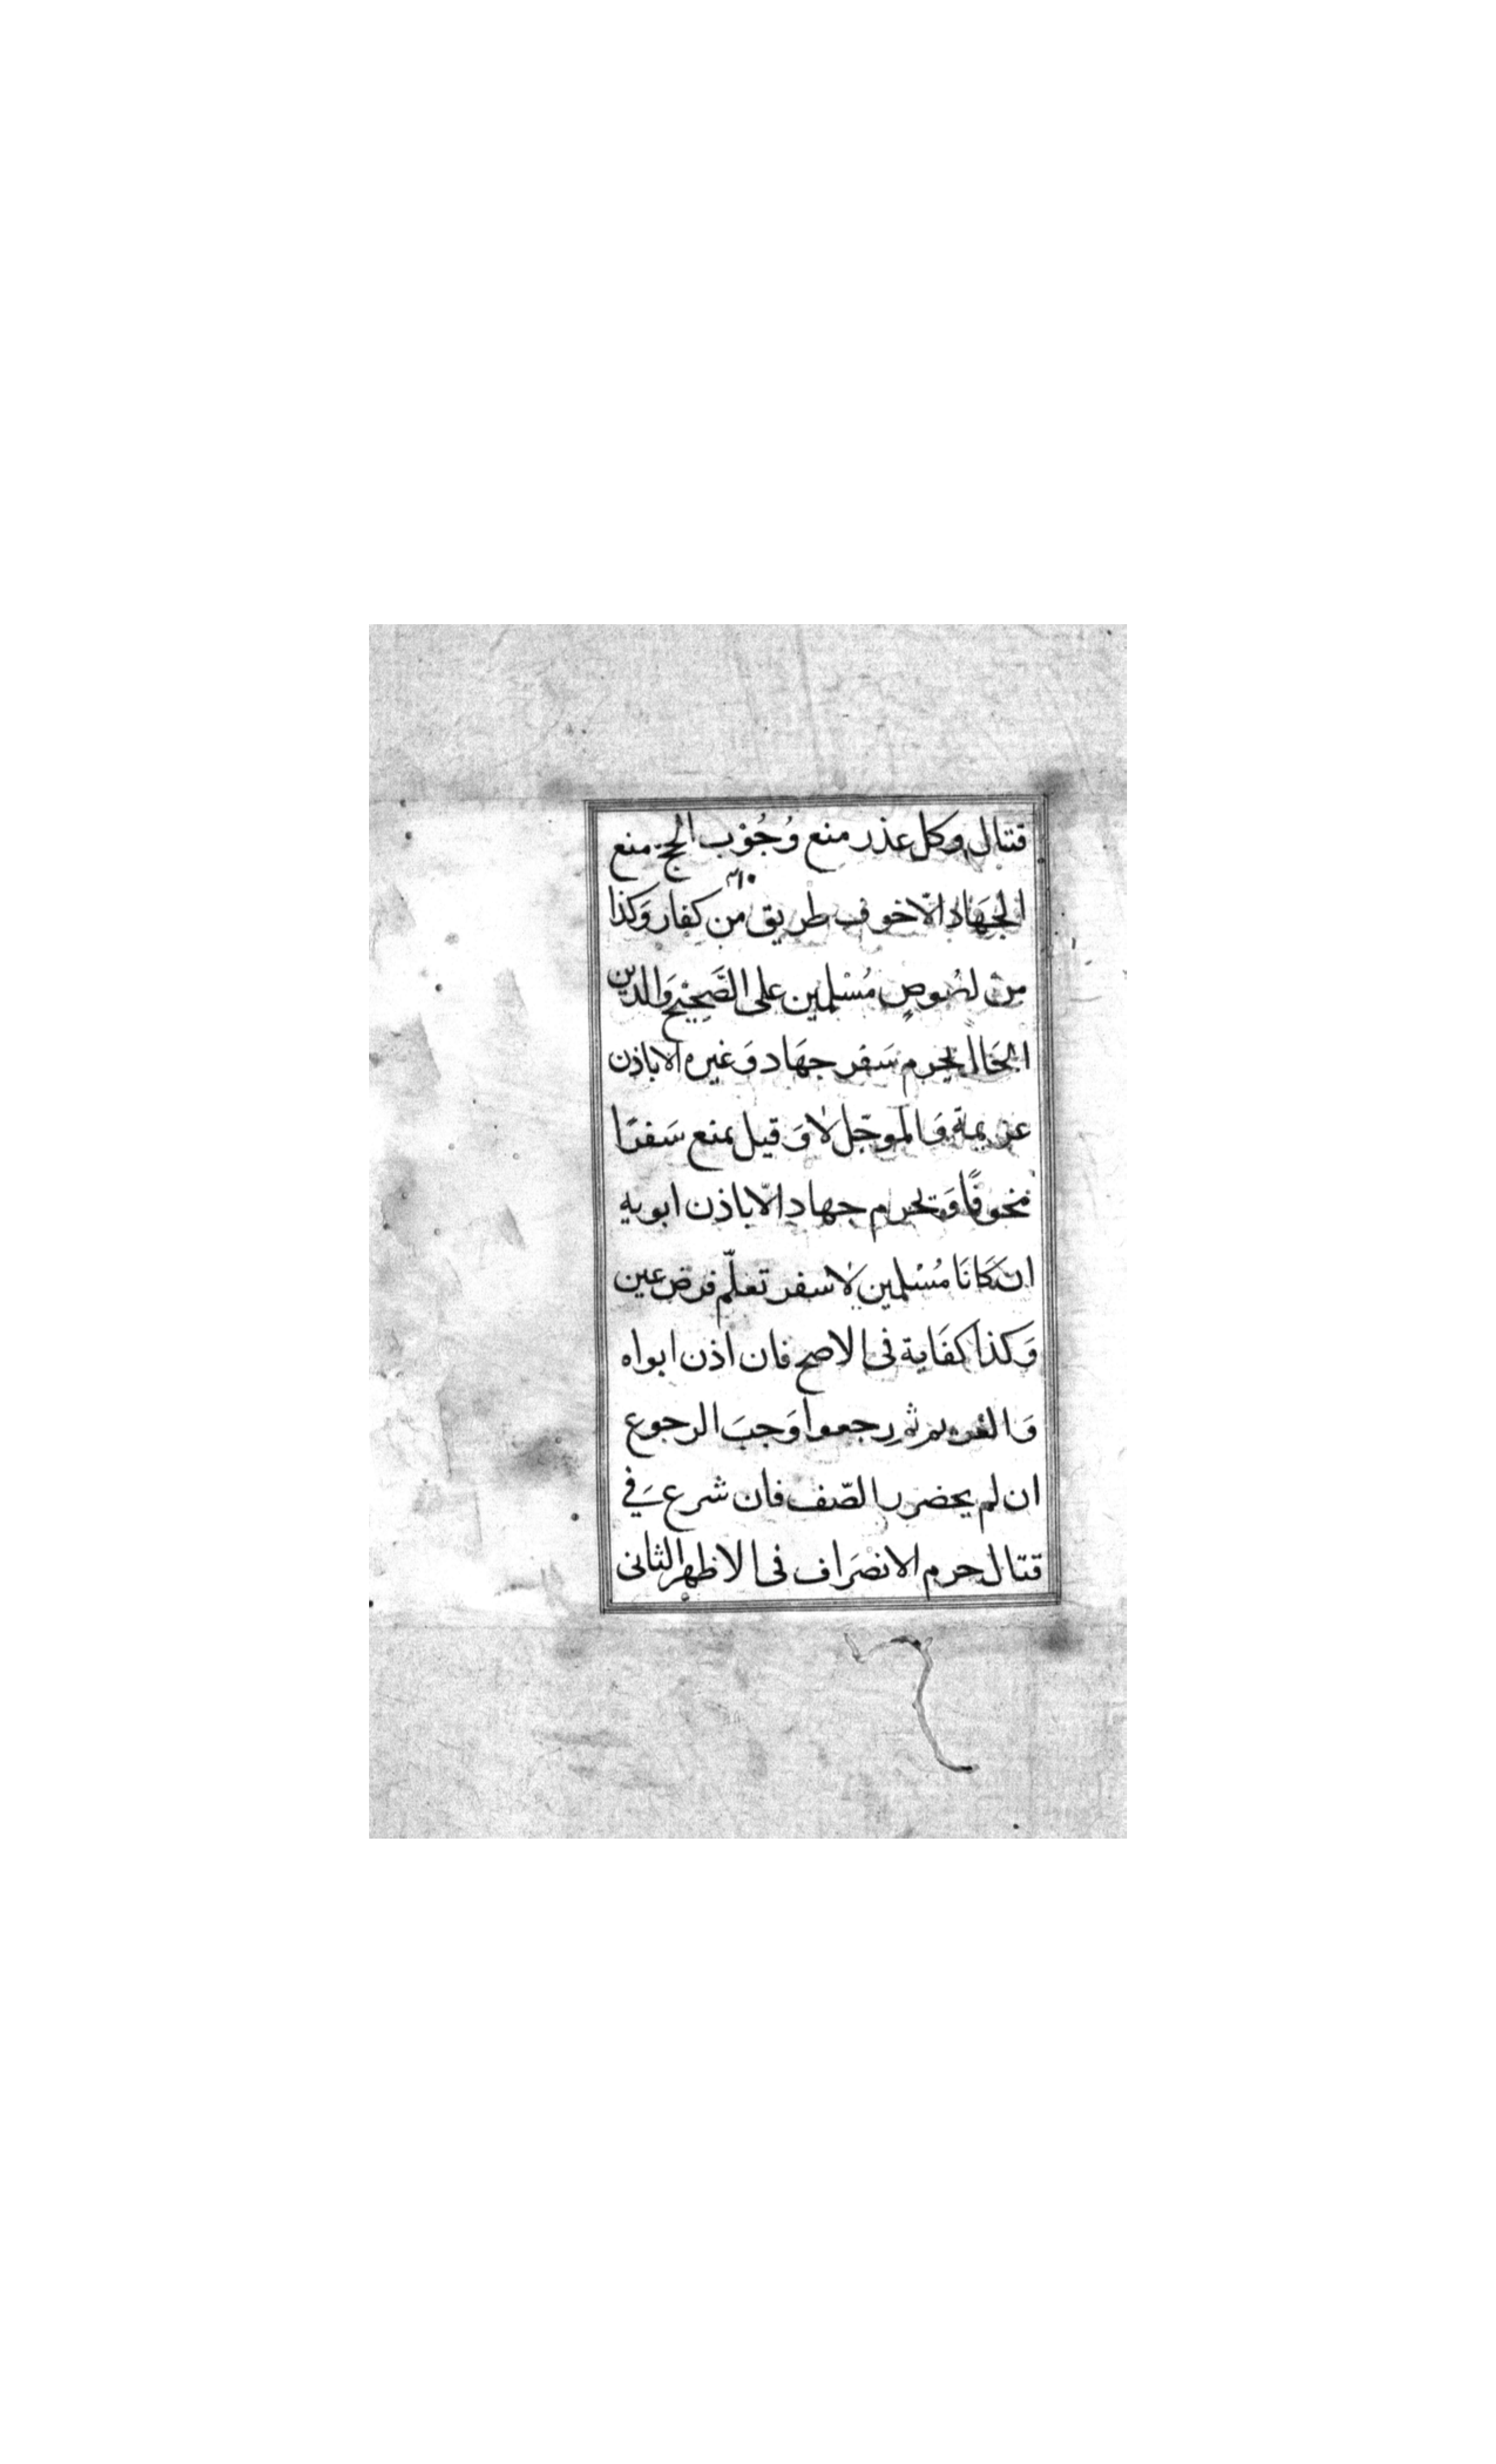 قتال وكل عذر منع وُجُوْب الحج منع
الجهَاد الّا خوف طريق من كفار وَكذا
مِنْ لصُوصٍ مُسْلمين على الصَّحِيْح وَالدين
الحَال يحرم سَفر جهَاد وَغيره الا باذن
غريمه وَالموجّل لا وَقيل يمنع سَفرًا
مخوفًا وَيحرم جهاد الّا باذن ابويه
ان كَانَا مُسْلمين لا سفر تعلّم فرض عين
وَكذا كفَاية فى الاصح فان اذن ابواه
وَالغريم ثم رجعوا وَجبَ الرجوع
ان لم يحضر الصّف فان شرع في
قتال حرم الانصرَاف فى الاظهر الثانى